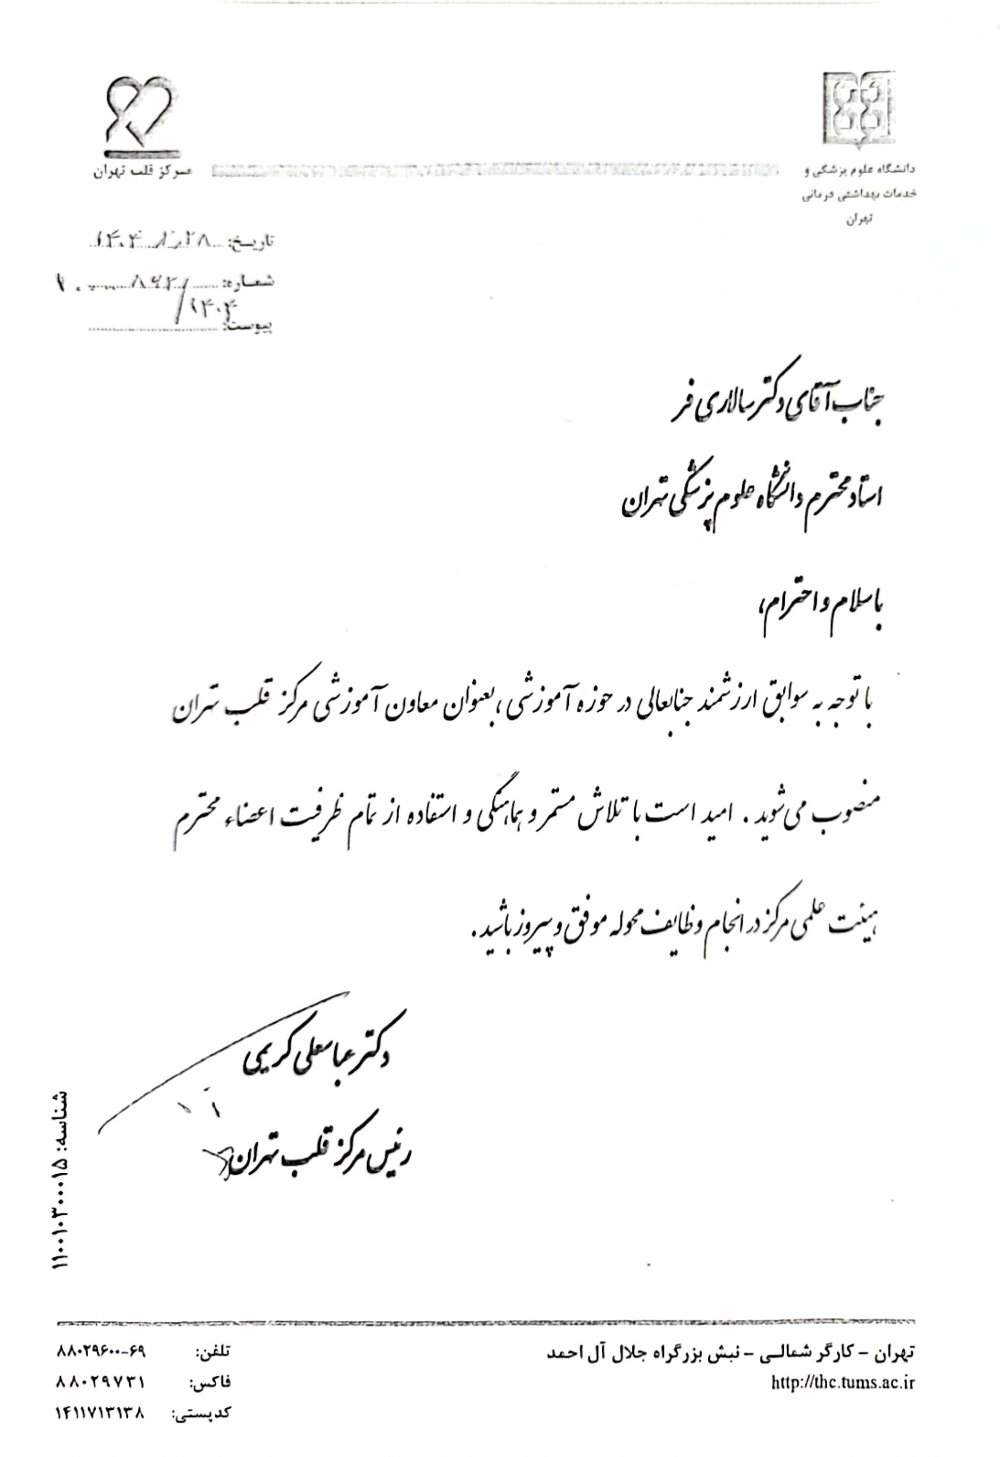 مرکز قلب تهران
دانشگاه علوم پزشکی و
خدمات بهداشتی درمانی
تهران
تاریخ: ۱۴۰۴
شماره:
۱۴۰۴
پیوست:
جناب آقای دکتر سالاری فر
استاد محترم دانشگاه علوم پزشکی تهران
با سلام و احترام،
با توجه به سوابق ارزشمند جنابعالی در حوزه آموزشی، بعنوان معاون آموزشی مرکز قلب تهران
منصوب می شوید. امید است با تلاش مستمر و هماهنگی و استفاده از تمام ظرفیت اعضاء محترم
هیئت علمی مرکز در انجام وظایف محوله موفق و پیروز باشید.
دکتر عباسعلی کریمی
رئیس مرکز قلب تهران
شناسه: ۱۱۰۰۱۰۳۰۰۰۱۵
تهران - کارگر شمالی - نبش بزرگراه جلال آل احمد
http://thc.tums.ac.ir
تلفن: ۸۸۰۲۹۶۰۰-۶۹
فاکس: ۸۸۰۲۹۷۳۱
کدپستی: ۱۴۱۱۷۱۳۱۳۸